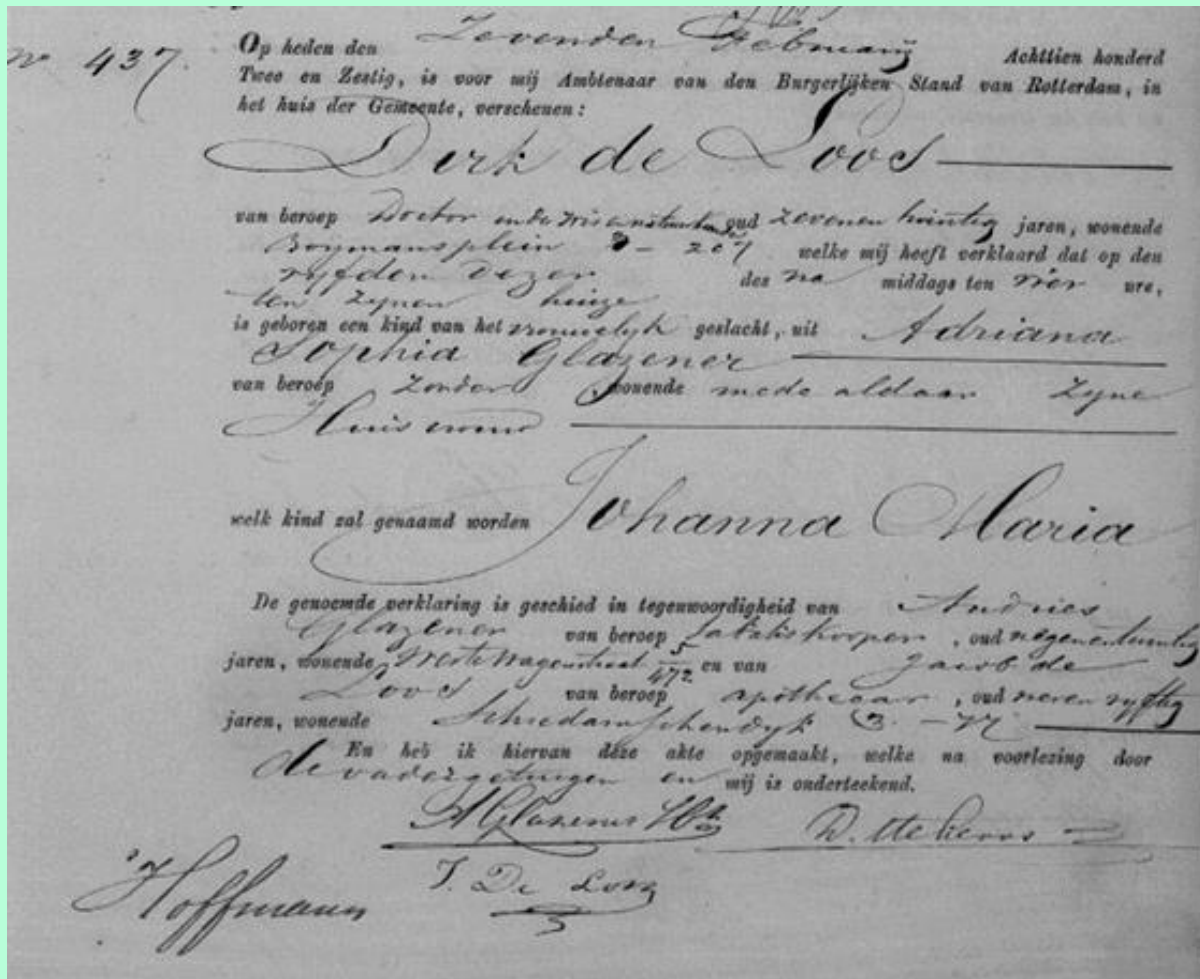 No 437.
Op heden den Zevenden Februarij Achttien honderd
Twee en Zestig, is voor mij Ambtenaar van den Burgerlijken Stand van Rotterdam, in
het huis der Gemeente, verschenen:
Dirk de Loos
van beroep Doctor in de oud zevenen twintig jaren, wonende
Boymansplein 3 - 207 welke mij heeft verklaard dat op den
vyfden dezer des na middags ten vier ure,
ten zynen huize
is geboren een kind van het vrouwelyk geslacht, uit Adriana
Sophia Glazener
van beroep Zonder, wonende mede aldaar Zyne
Huisvrouw
welk kind zal genaamd worden Johanna Maria
De genoemde verklaring is geschied in tegenwoordigheid van Andries
Glazener van beroep, oud negenentwintig
jaren, wonende Wagenstraat 5 472 en van Jacob de
Loos van beroep apothecar, oud vyftig
jaren, wonende Schiedamschendyk 3 - 77
En heb ik hiervan deze akte opgemaakt, welke na voorlezing door
de vader getuigen en mij is onderteekend.
A Glazener
J. De Loos
Hoffmann